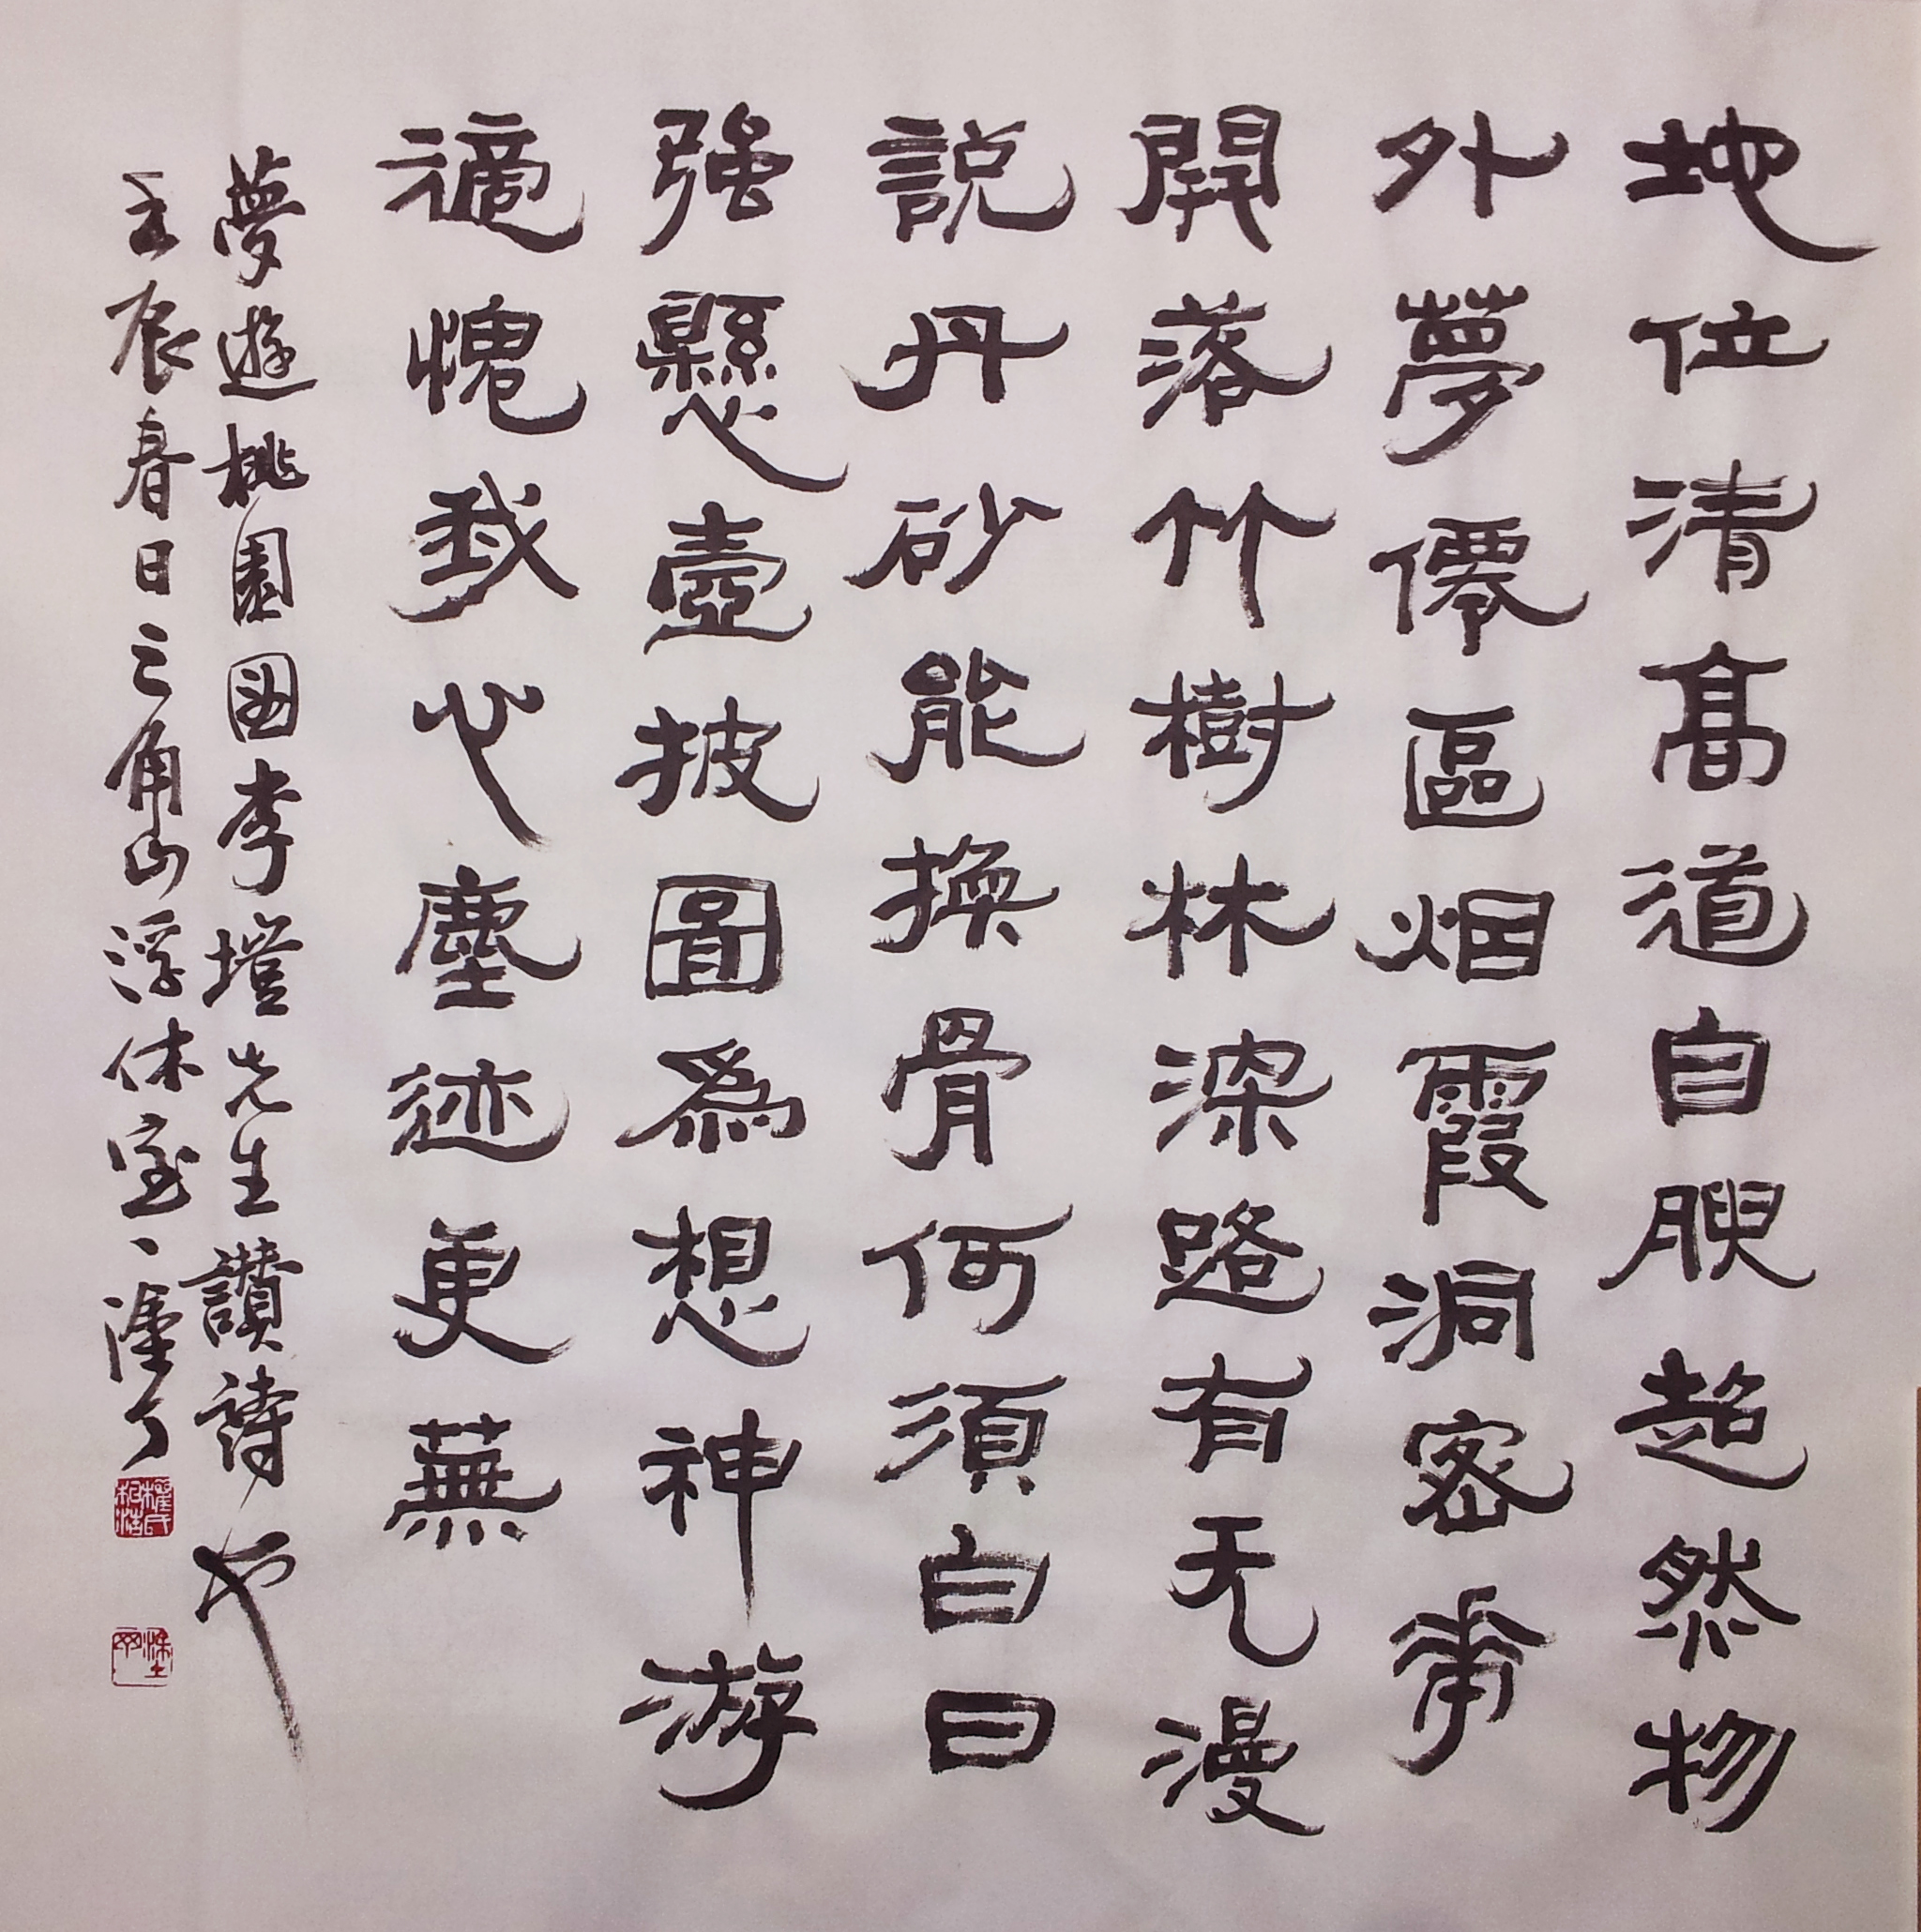 地位清高道自腴超然物
外夢僊區烟霞洞密華
開落竹樹林深路有无漫
説丹砂能換骨何須白日
强懸壺披圖爲想神游
適愧我心塵迹更蕪
夢遊桃園圖李塏先生讚詩也
壬辰春日三角山浮休室塗丁
權氏相浩